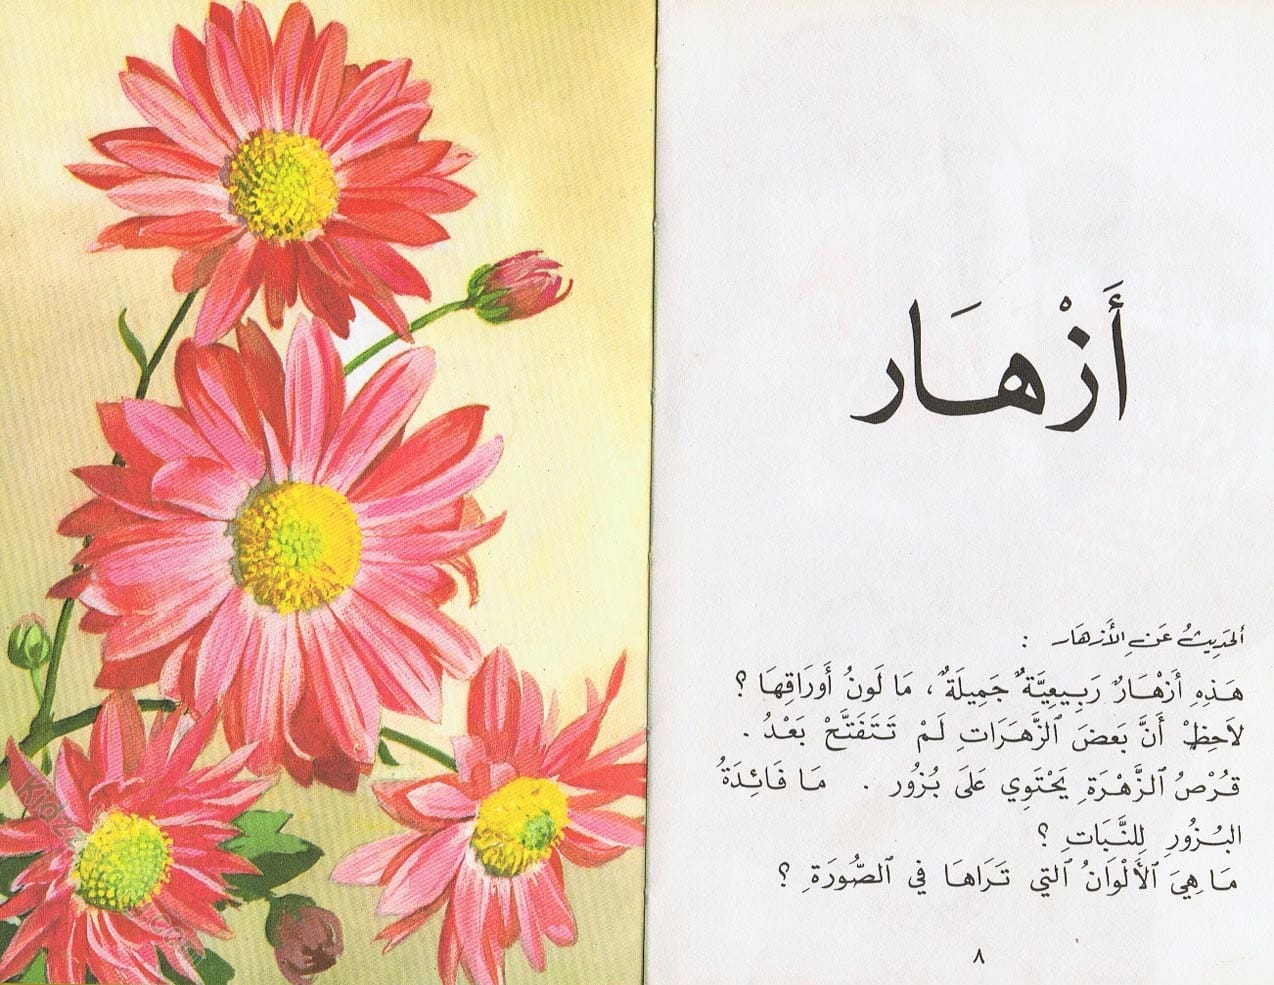 أَزْهَار
الحَدِيثُ عَنِ الأَزهَار :
هَذِهِ أَزْهَارٌ رَبِيعِيَّةٌ جَمِيلَةٌ ، مَا لَونُ أَورَاقِهَا ؟
لاَحِظْ أَنَّ بَعضَ ٱلزَّهَرَاتِ لَمْ تَتَفَتَّحْ بَعْدُ .
قُرْصُ ٱلزَّهْرَةِ يَحْتَوِي عَلَى بُزُور . مَا فَائِدَةُ
البُزُورِ لِلنَّبَاتِ ؟
مَا هِيَ ٱلأَلْوَانُ ٱلتي تَرَاهَا في ٱلصُّورَةِ ؟
٨